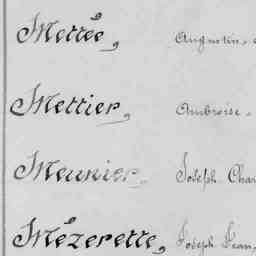 Mettée, Augustin,
Mettier, Ambroise,
Meunier, Joseph Char
Mézerette, Joseph Jean,